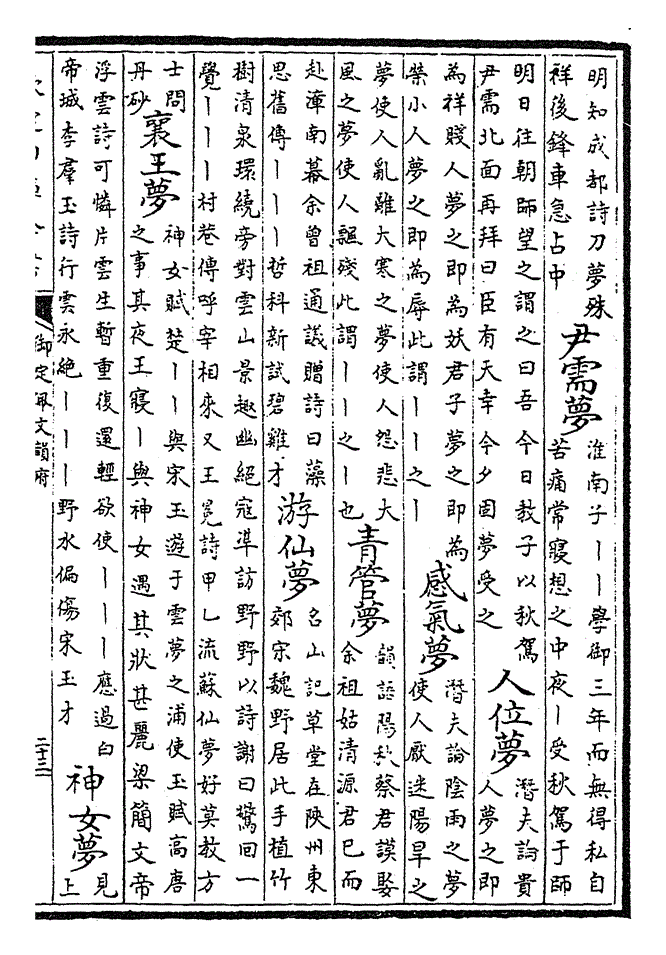 明知成都詩刀夢殊
祥後鋒車急占中
尹需夢
淮南子丨丨學御三年而無得私自
苦痛常寢想之中夜丨受秋駕于師
明日往朝師望之謂之曰吾今日教子以秋駕
尹需北面再拜曰臣有天幸今夕固夢受之
人位夢
潛夫論貴
人夢之即
為祥賤人夢之即為妖君子夢之即為
榮小人夢之即為辱此謂丨丨之丨
感氣夢
潛夫論陰雨之夢
使人厭迷陽旱之
夢使人亂離大寒之夢使人怨悲大
風之夢使人飄殘此謂丨丨之丨也
青管夢
韻語陽秋蔡君謨娶
余祖姑清源君巳而
赴漳南幕余曾祖通議贈詩曰藻
思舊傳丨丨丨哲科新試碧雞才
游仙夢
名山記草堂在陝州東
郊宋魏野居此手植竹
樹清泉環繞旁對雲山景趣幽絕寇準訪野野以詩謝曰驚回一
覺丨丨丨村巷傳呼宰相來又王冕詩甲乙流蘇仙夢好莫教方
士問
丹砂
襄王夢
神女賦楚丨丨與宋玉遊于雲夢之浦使玉賦高唐
之事其夜王寢丨與神女遇其狀甚麗梁簡文帝
浮雲詩可憐片雲生暫重復還輕欲使丨丨丨應過白
帝城李羣玉詩行雲永絕丨丨丨野水偏傷宋玉才
神女夢
見
上
御定佩文韻府
二十三